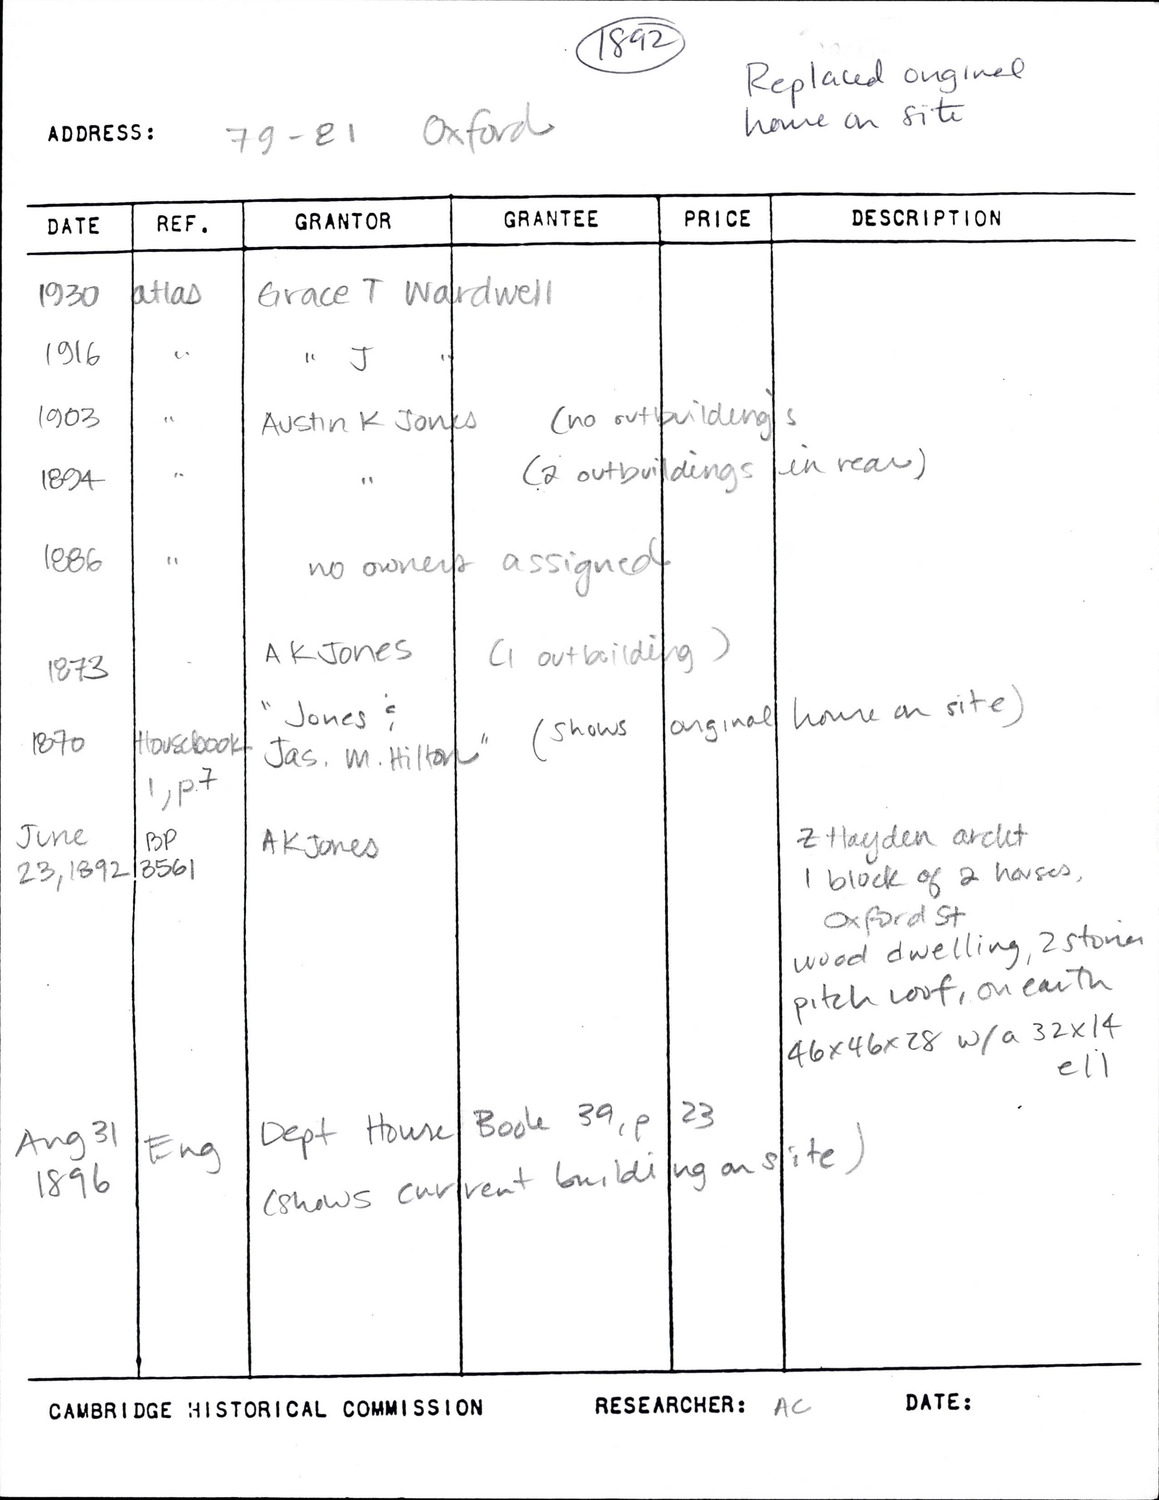 1892
Replaced original
home on site
ADDRESS: 79-81 Oxford
DATE REF. GRANTOR GRANTEE PRICE DESCRIPTION
1930 atlas Grace T Wardwell
1916 " " J "
1903 " Austin K Jones (no outbuildings
1894 " " (2 outbuildings in rear)
1886 " no owners assigned
1873 A K Jones (1 outbuilding)
"Jones &
1870 Housebook Jas. M. Hilton" (shows original home on site)
1, p.7
June BP A K Jones Z Hayden archt
23, 1892 13561 1 block of 2 houses,
Oxford St
wood dwelling, 2 stories
pitch roof, on earth
46x46x28 w/a 32x14
ell
Aug 31 Eng Dept House Book 39, p 23
1896 (shows current building on site)
CAMBRIDGE HISTORICAL COMMISSION RESEARCHER: AC DATE: